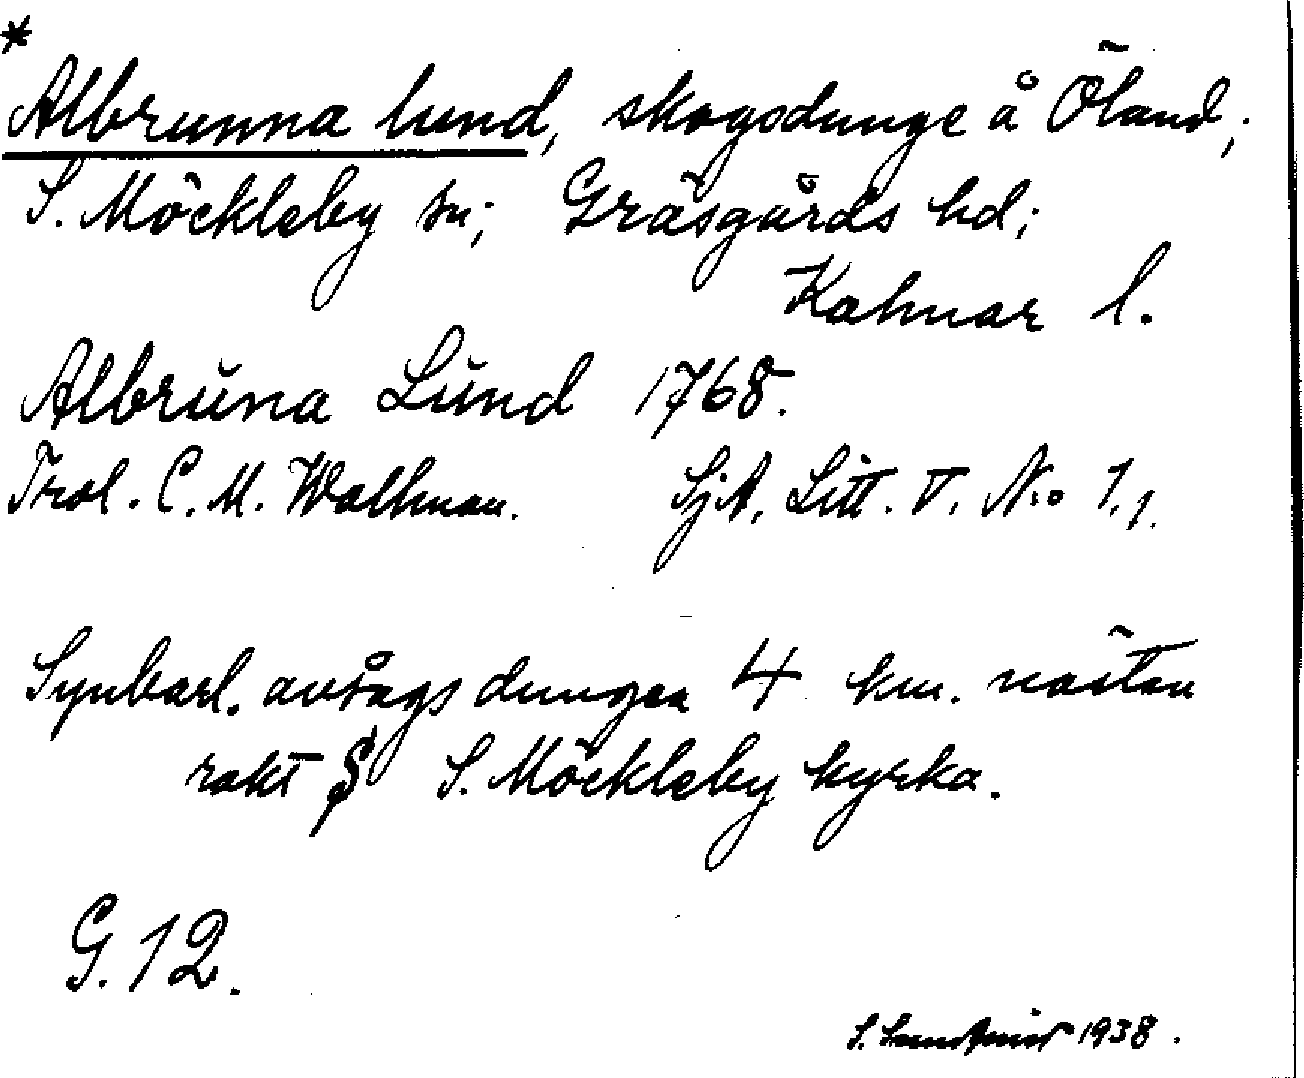 *
Albrunna lund, skogsdunge å Öland;
S. Möckleby sn; Gräsgårds hd;
Kalmar l.
Albrŭna Lŭnd 1768.
Trol. C. M. Wallman. SjA, Litt. V. No 1.1.
Synbarl. avsågs dungen 4 km. nästan
rakt S S. Möckleby kyrka.
G. 12.
S. Sundqvist 1938.